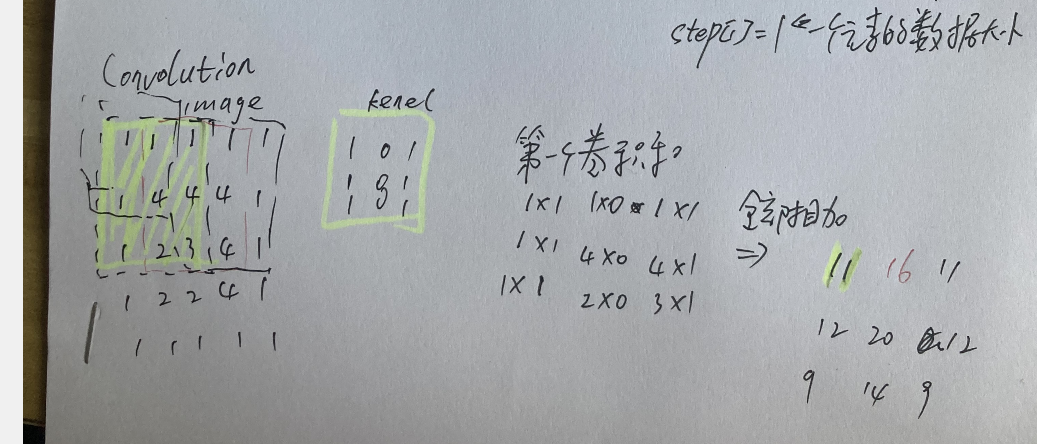 step[1]=1 ← 一个元素的数据大小
Convolution
image
kenel
1 1 1 1 1
1 4 4 4 1
1 2 3 4 1
1 2 2 4 1
1 1 1 1 1
1 0 1
1 0 1
第一个卷积和
1x1 1x0 1x1
1x1 4x0 4x1
1x1 2x0 3x1
全部相加
⇒
11 16 11
12 20 12
9 14 9